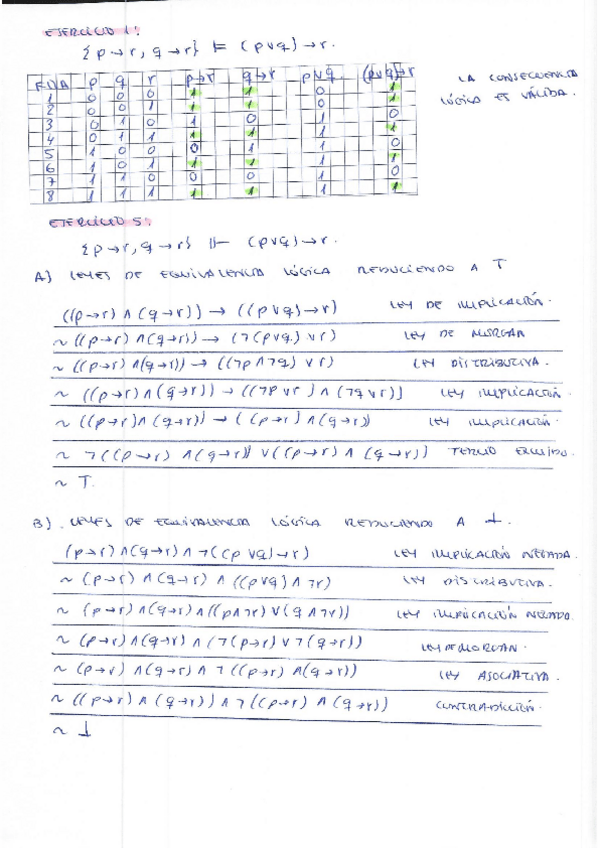 EJERCICIO 1:
{p→r, q→r} ⊨ (p∨q)→r.
FILA p q r p→r q→r p∨q (p∨q)→r
1 0 0 0 1 1 0 1
2 0 0 1 1 1 0 1
3 0 1 0 1 0 1 0
4 0 1 1 1 1 1 1
5 1 0 0 0 1 1 0
6 1 0 1 1 1 1 1
7 1 1 0 0 0 1 0
8 1 1 1 1 1 1 1
LA CONSECUENCIA
LÓGICA ES VÁLIDA.
EJERCICIO 5:
{p→r, q→r} ⊩ (p∨q)→r.
A) LEYES DE EQUIVALENCIA LÓGICA REDUCIENDO A T
((p→r) ∧ (q→r)) → ((p∨q)→r) LEY DE IMPLICACIÓN.
~ ((p→r) ∧ (q→r)) → (¬(p∨q) ∨ r) LEY DE MORGAN
~ ((p→r) ∧ (q→r)) → ((¬p∧¬q) ∨ r) LEY DISTRIBUTIVA.
~ ((p→r) ∧ (q→r)) → ((¬p∨r) ∧ (¬q∨r)) LEY IMPLICACIÓN.
~ ((p→r) ∧ (q→r)) → ((p→r) ∧ (q→r)) LEY IMPLICACIÓN.
~ ¬((p→r) ∧ (q→r)) ∨ ((p→r) ∧ (q→r)) TERCIO EXCLUIDO.
~ T.
B). LEYES DE EQUIVALENCIA LÓGICA REDUCIENDO A ⊥.
(p→r) ∧ (q→r) ∧ ¬((p∨q)→r) LEY IMPLICACIÓN NEGADA.
~ (p→r) ∧ (q→r) ∧ ((p∨q) ∧ ¬r) LEY DISTRIBUTIVA.
~ (p→r) ∧ (q→r) ∧ ((p∧¬r) ∨ (q∧¬r)) LEY IMPLICACIÓN NEGADO.
~ (p→r) ∧ (q→r) ∧ (¬(p→r) ∨ ¬(q→r)) LEY DE MORGAN.
~ (p→r) ∧ (q→r) ∧ ¬((p→r) ∧ (q→r)) LEY ASOCIATIVA.
~ ((p→r) ∧ (q→r)) ∧ ¬((p→r) ∧ (q→r)) CONTRADICCIÓN.
~ ⊥